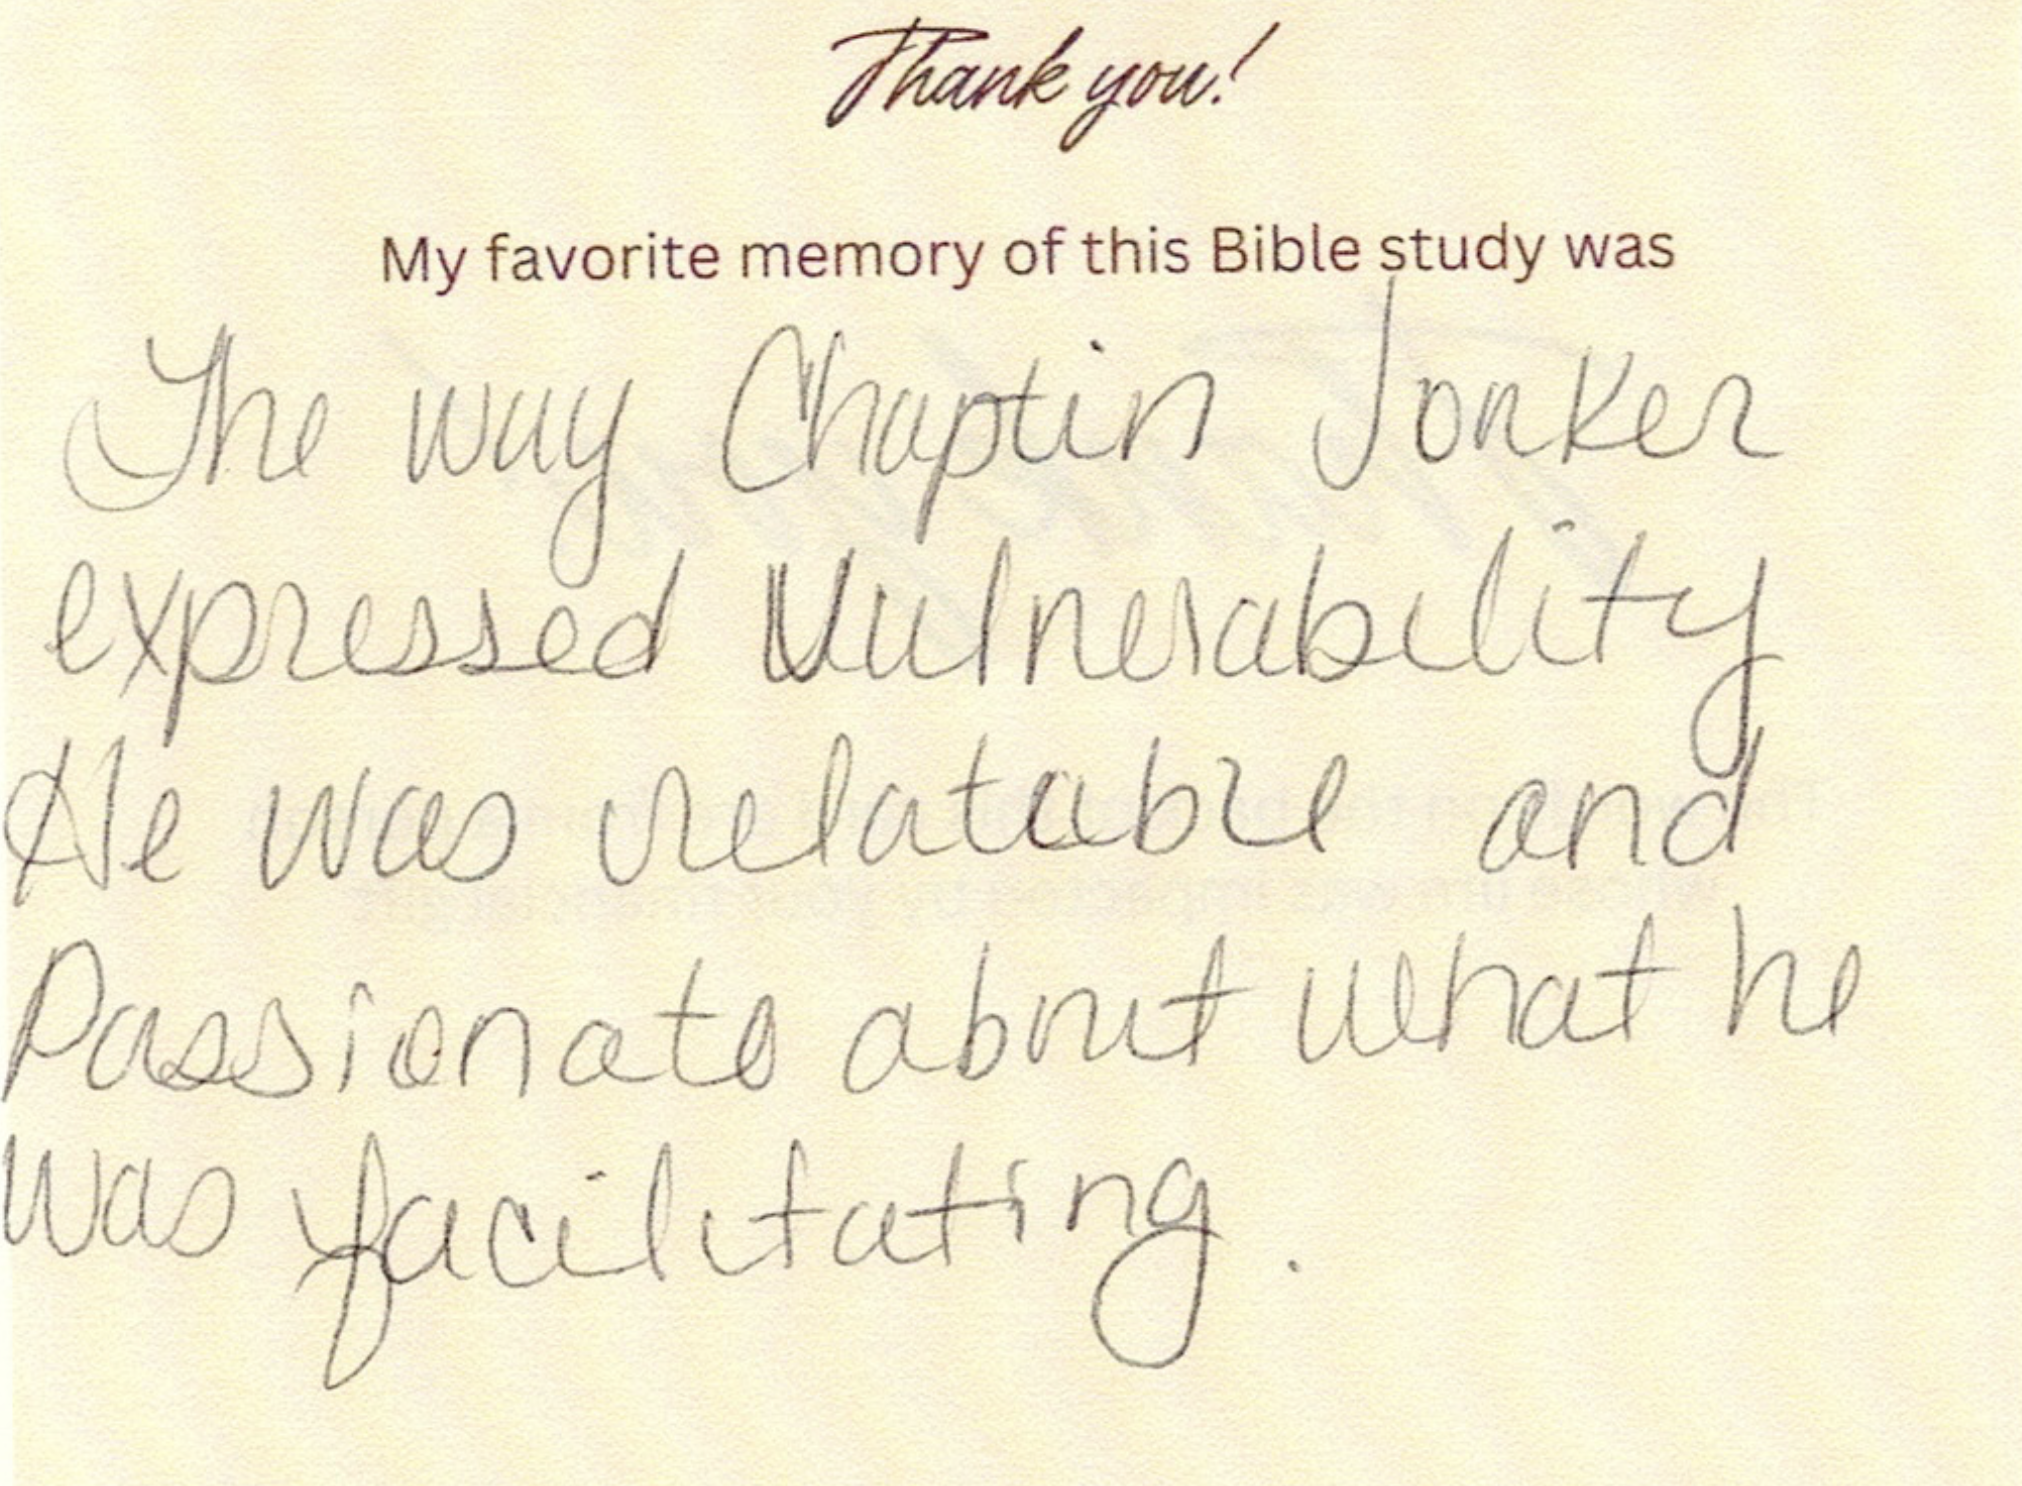 Thank you!
My favorite memory of this Bible study was
The way Chaptin Jonker
expressed Vulnerability
He was relatable and
Passionate about what he
was facilitating.